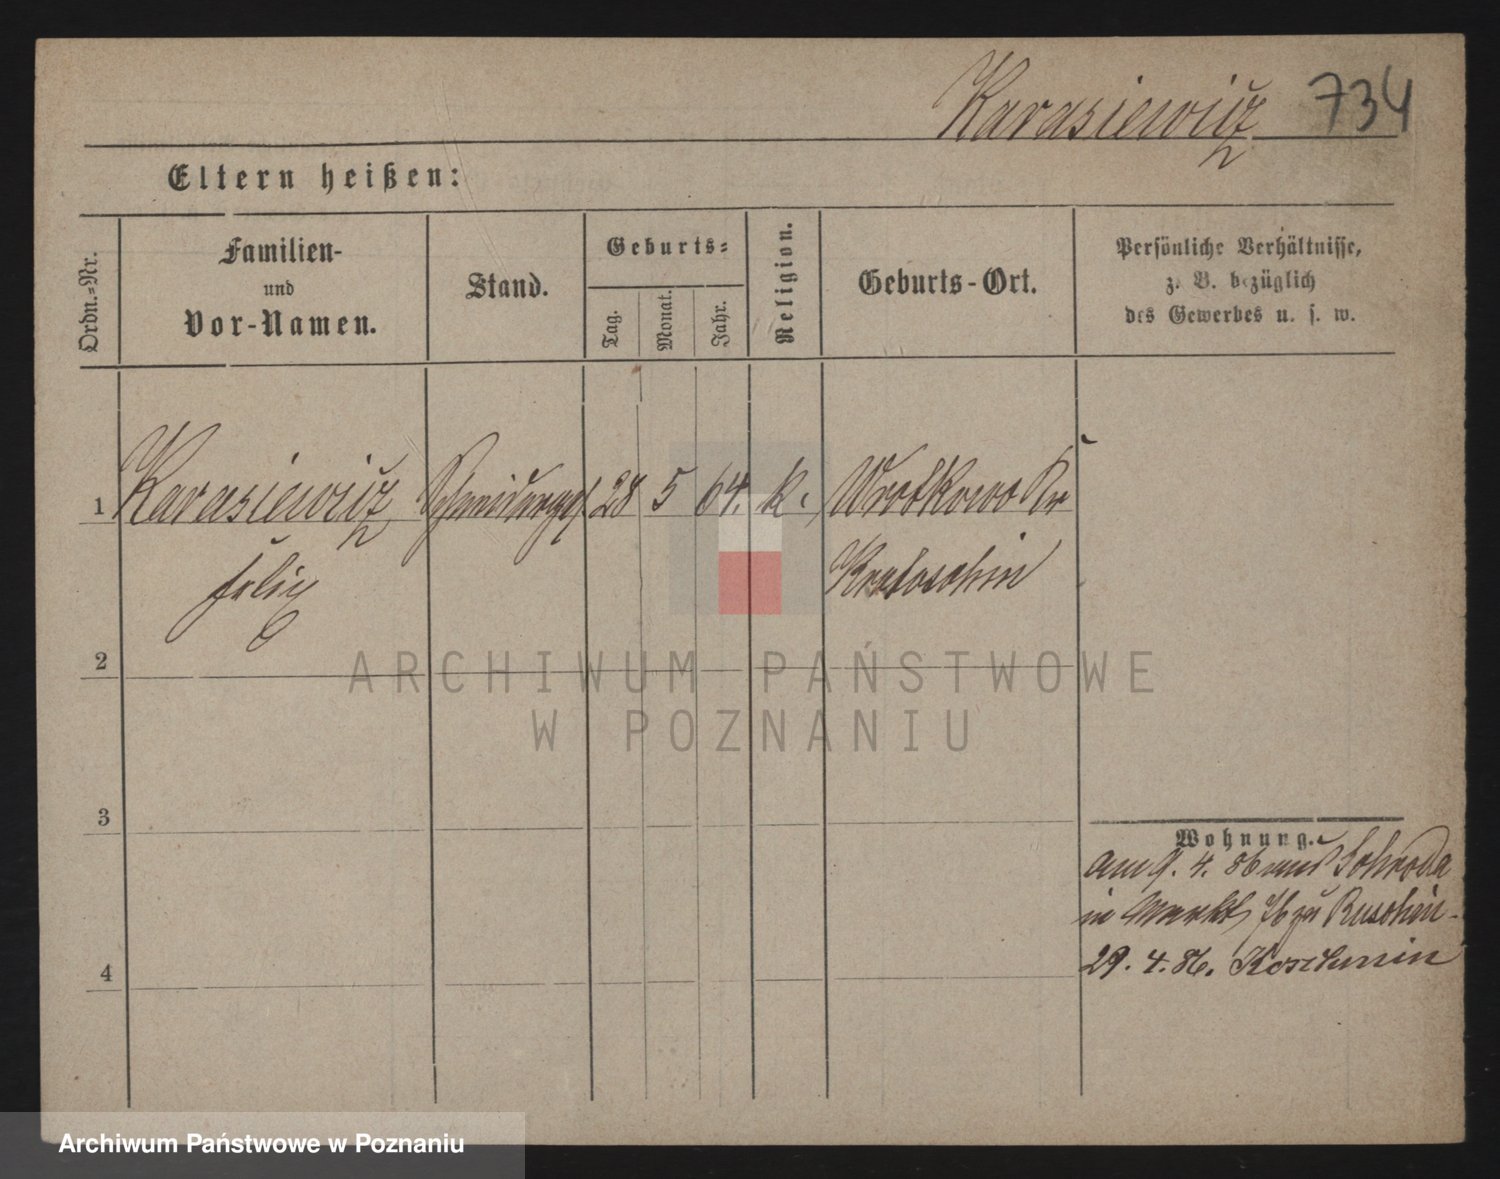 Karasiewicz 734
Eltern heißen:
Ordn.-Nr.
Familien-
und
Vor-Namen.
Stand.
Geburts-
Tag.
Monat.
Jahr.
Religion.
Geburts-Ort.
Persönliche Verhältnisse,
z. B. bezüglich
des Gewerbes u. s. w.
1 Karasiewicz Schneiderges 28 5 64. k. Wrotkowo Kr
Felix Krotoschin
2
3
4
Wohnung.
am 9. 4. 86 aus Schroda
in Markt zu Ruschin
29. 4. 86. Koschmin
ARCHIWUM PAŃSTWOWE
W POZNANIU
Archiwum Państwowe w Poznaniu